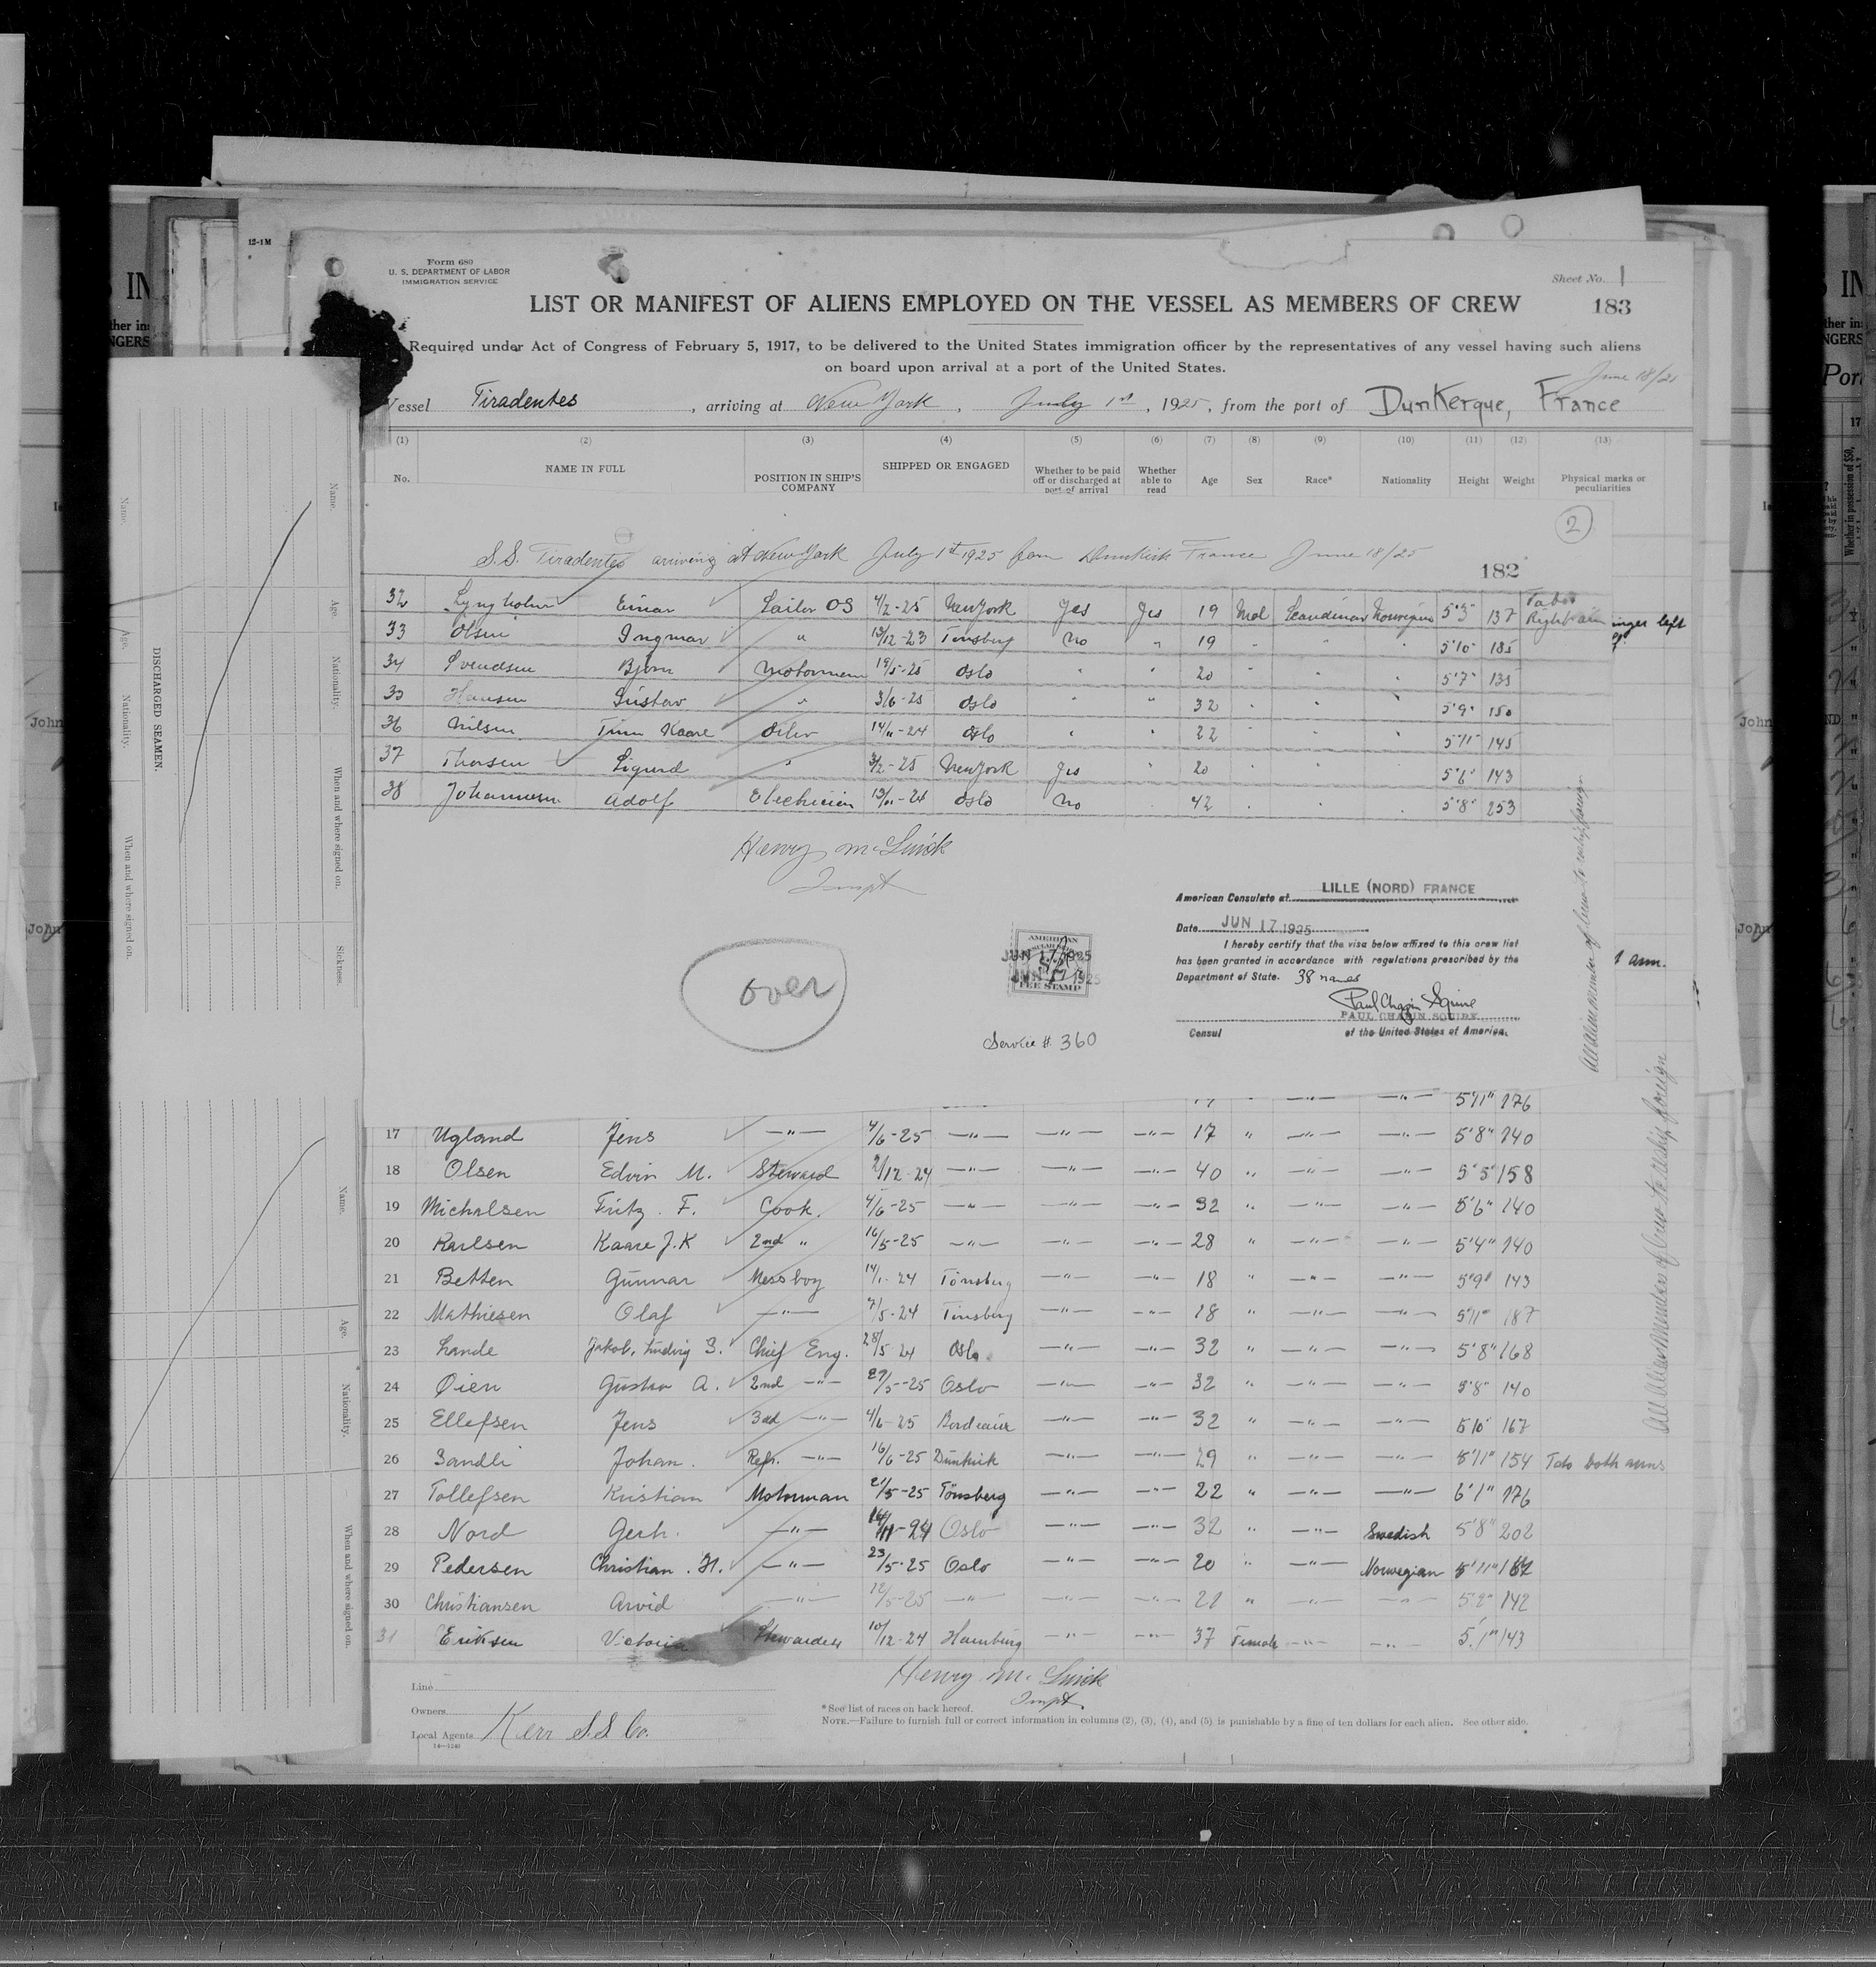 12-1M
Form 680
U. S. DEPARTMENT OF LABOR
IMMIGRATION SERVICE
Sheet No. 1
LIST OR MANIFEST OF ALIENS EMPLOYED ON THE VESSEL AS MEMBERS OF CREW
183
Required under Act of Congress of February 5, 1917, to be delivered to the United States immigration officer by the representatives of any vessel having such aliens
on board upon arrival at a port of the United States.
June 18/25
Vessel Tiradentes, arriving at New York, July 1st, 1925, from the port of Dunkerque, France
(1) (2) (3) (4) (5) (6) (7) (8) (9) (10) (11) (12) (13)
No. NAME IN FULL POSITION IN SHIP'S COMPANY SHIPPED OR ENGAGED Whether to be paid off or discharged at port of arrival Whether able to read Age Sex Race* Nationality Height Weight Physical marks or peculiarities
2
S.S. Tiradentes arriving at New York July 1st 1925 from Dunkirk France June 18/25
182
32 Lyngholm Einar Sailor OS 4/2-25 New York Yes Yes 19 Mal Scandinav Norwegian 5'3" 137 Taboo Right arm
inger left
33 Olsen Ingmar " 13/12-23 Tønsberg No " 19 " " " 5'10" 185
34 Svendsen Bjørn Motorman 19/5-25 Oslo " " 20 " " " 5'7" 135
35 Hansen Gustav " 3/6-25 Oslo " " 32 " " " 5'9" 150
36 Nilsen Finn Kaare Oiler 14/11-24 Oslo " " 22 " " " 5'11" 145
37 Thorsen Sigurd " 3/2-25 New York Yes " 20 " " " 5'6" 143
38 Johannesen Adolf Electrician 13/11-24 Oslo No 42 " " " 5'8" 253
Henry McQuick
Inspt
over
AMERICAN
JUN 17 1925
JUN 17 1925
FEE STAMP
Service # 360
American Consulate at LILLE (NORD) FRANCE
Date JUN 17 1925
I hereby certify that the visa below affixed to this crew list
has been granted in accordance with regulations prescribed by the
Department of State. 38 names
Paul Chapin Squire
PAUL CHAPIN SQUIRE
Consul of the United States of America.
1 arm.
All alien members of crew to reship foreign
5'11" 176
17 Ugland Jens —"— 4/6-25 —"— —"— —"— 17 " —"— —"— 5'8" 140
18 Olsen Edvin M. Steward 2/12-24 —"— —"— —"— 40 " —"— —"— 5'5" 158
19 Michalsen Fritz. F. Cook. 4/6-25 —"— —"— —"— 32 " —"— —"— 5'6" 140
20 Karlsen Kaare J.K 2nd " 16/5-25 —"— —"— —"— 28 " —"— —"— 5'4" 140
21 Betten Gunnar Messboy 14/1-24 Tönsberg —"— —"— 18 " —"— —"— 5'9" 143
22 Mathiesen Olaf —"— 7/5-24 Tönsberg —"— —"— 18 " —"— —"— 5'11" 187
23 Lande Jakob, Ludvig S. Chief Eng. 28/5-24 Oslo —"— —"— 32 " —"— —"— 5'8" 168
24 Øien Gustav A. 2nd —"— 27/5-25 Oslo —"— —"— 32 " —"— —"— 5'8" 140
25 Ellefsen Jens 3rd —"— 4/6-25 Bordeaux —"— —"— 32 " —"— —"— 5'10" 167
26 Sandli Johan. Refr. —"— 16/6-25 Dunkirk —"— —"— 29 " —"— —"— 5'11" 154 Tato both arms
27 Tollefsen Kristian Motorman 21/5-25 Tönsberg —"— —"— 22 " —"— —"— 6'1" 176
28 Nord Gerh. —"— 14/11-24 Oslo —"— —"— 32 " —"— Swedish 5'8" 202
29 Pedersen Christian. H. —"— 23/5-25 Oslo —"— —"— 20 " —"— Norwegian 5'11" 182
30 Christiansen Arvid —"— 12/5-25 —"— —"— —"— 21 " —"— —"— 5'2" 142
31 Eriksen Victoria Stewardess 10/12-24 Hamburg —"— —"— 37 Female —"— —"— 5'1" 143
All alien members of crew to reship foreign
Henry McQuick
Inspt.
Line
Owners
Local Agents Kerr S.S. Co.
14—1340
* See list of races on back hereof.
NOTE.—Failure to furnish full or correct information in columns (2), (3), (4), and (5) is punishable by a fine of ten dollars for each alien. See other side.
DISCHARGED SEAMEN.
Name. Age. Nationality. When and where signed on. Sickness.
Name. Age. Nationality. When and where signed on.
Name. Age. Nationality. When and where signed on.
John
John